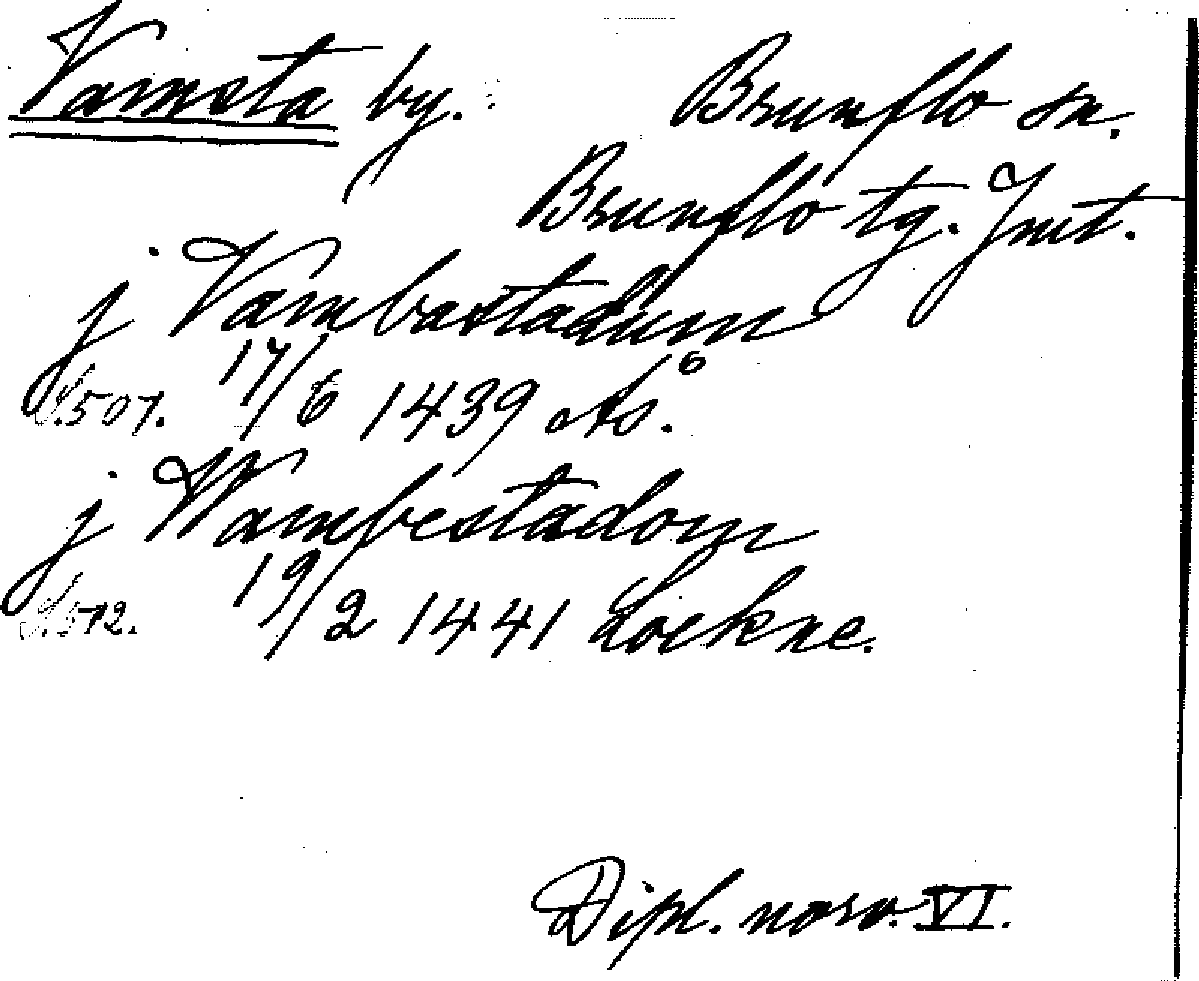 Vamsta by. Brunflo sn.
Brunflo tg. Jmt.
j Vambastadum
S.507. 17/6 1439 Ås.
j Wambestadom
S.572. 19/2 1441 Lockne.
Dipl. norv. VI.